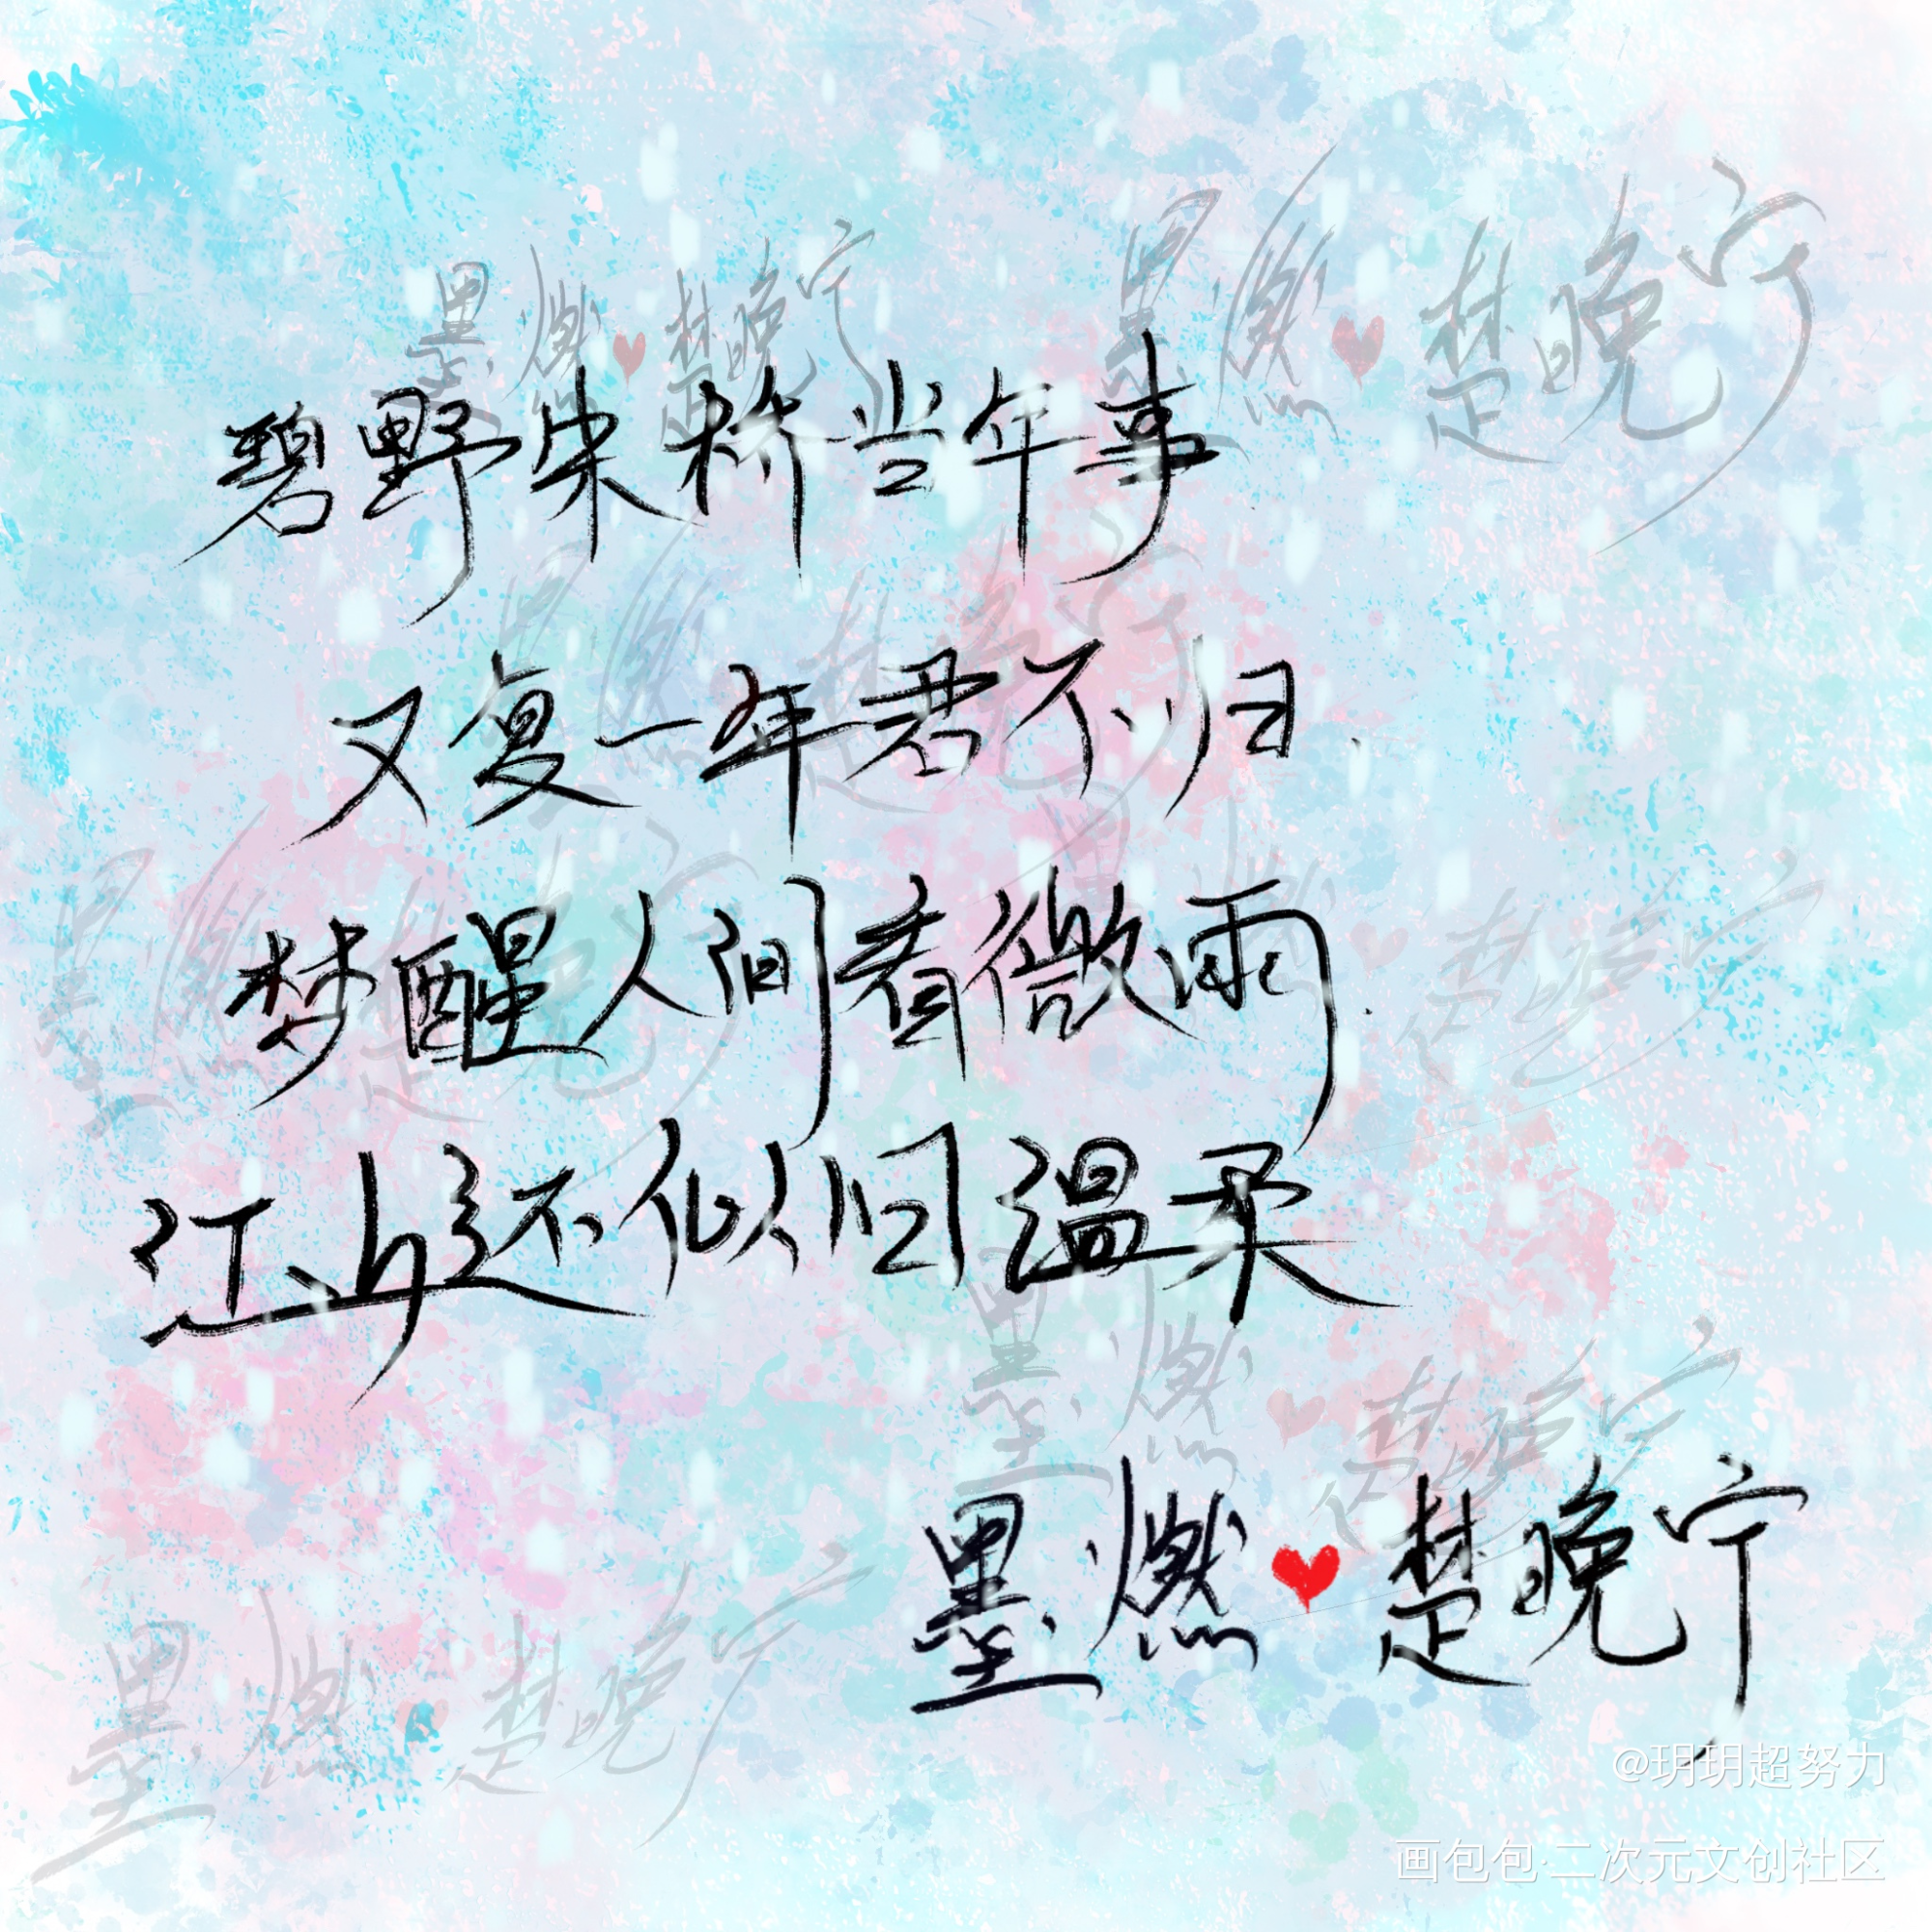 墨燃 楚晚宁
墨燃 楚晚宁
碧野朱桥当年事
又复一年君不归
梦醒人间看微雨
江山还似旧温柔
墨燃 楚晚宁
墨燃 楚晚宁
墨燃 楚晚宁
墨燃 楚晚宁
墨燃 楚晚宁
墨燃 楚晚宁
@玥玥超努力
画包包·二次元文创社区